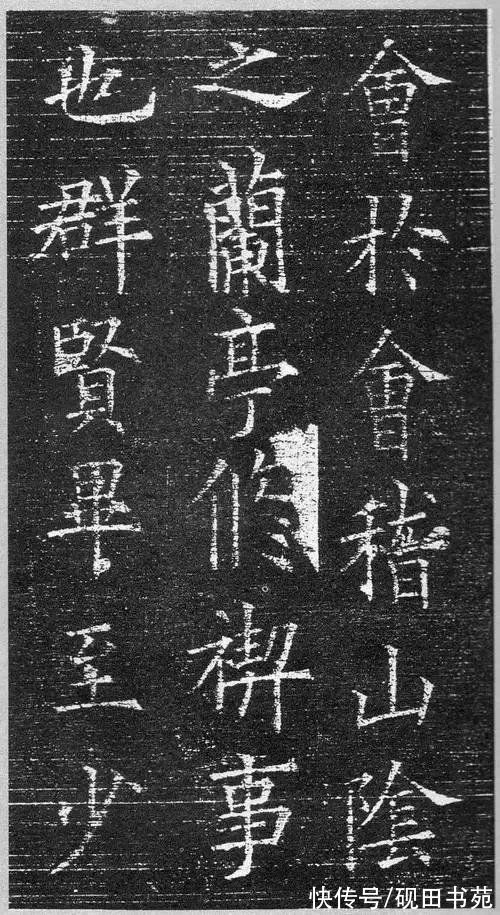 會於會稽山陰
之蘭亭修禊事
也群賢畢至少
快传号/砚田书苑